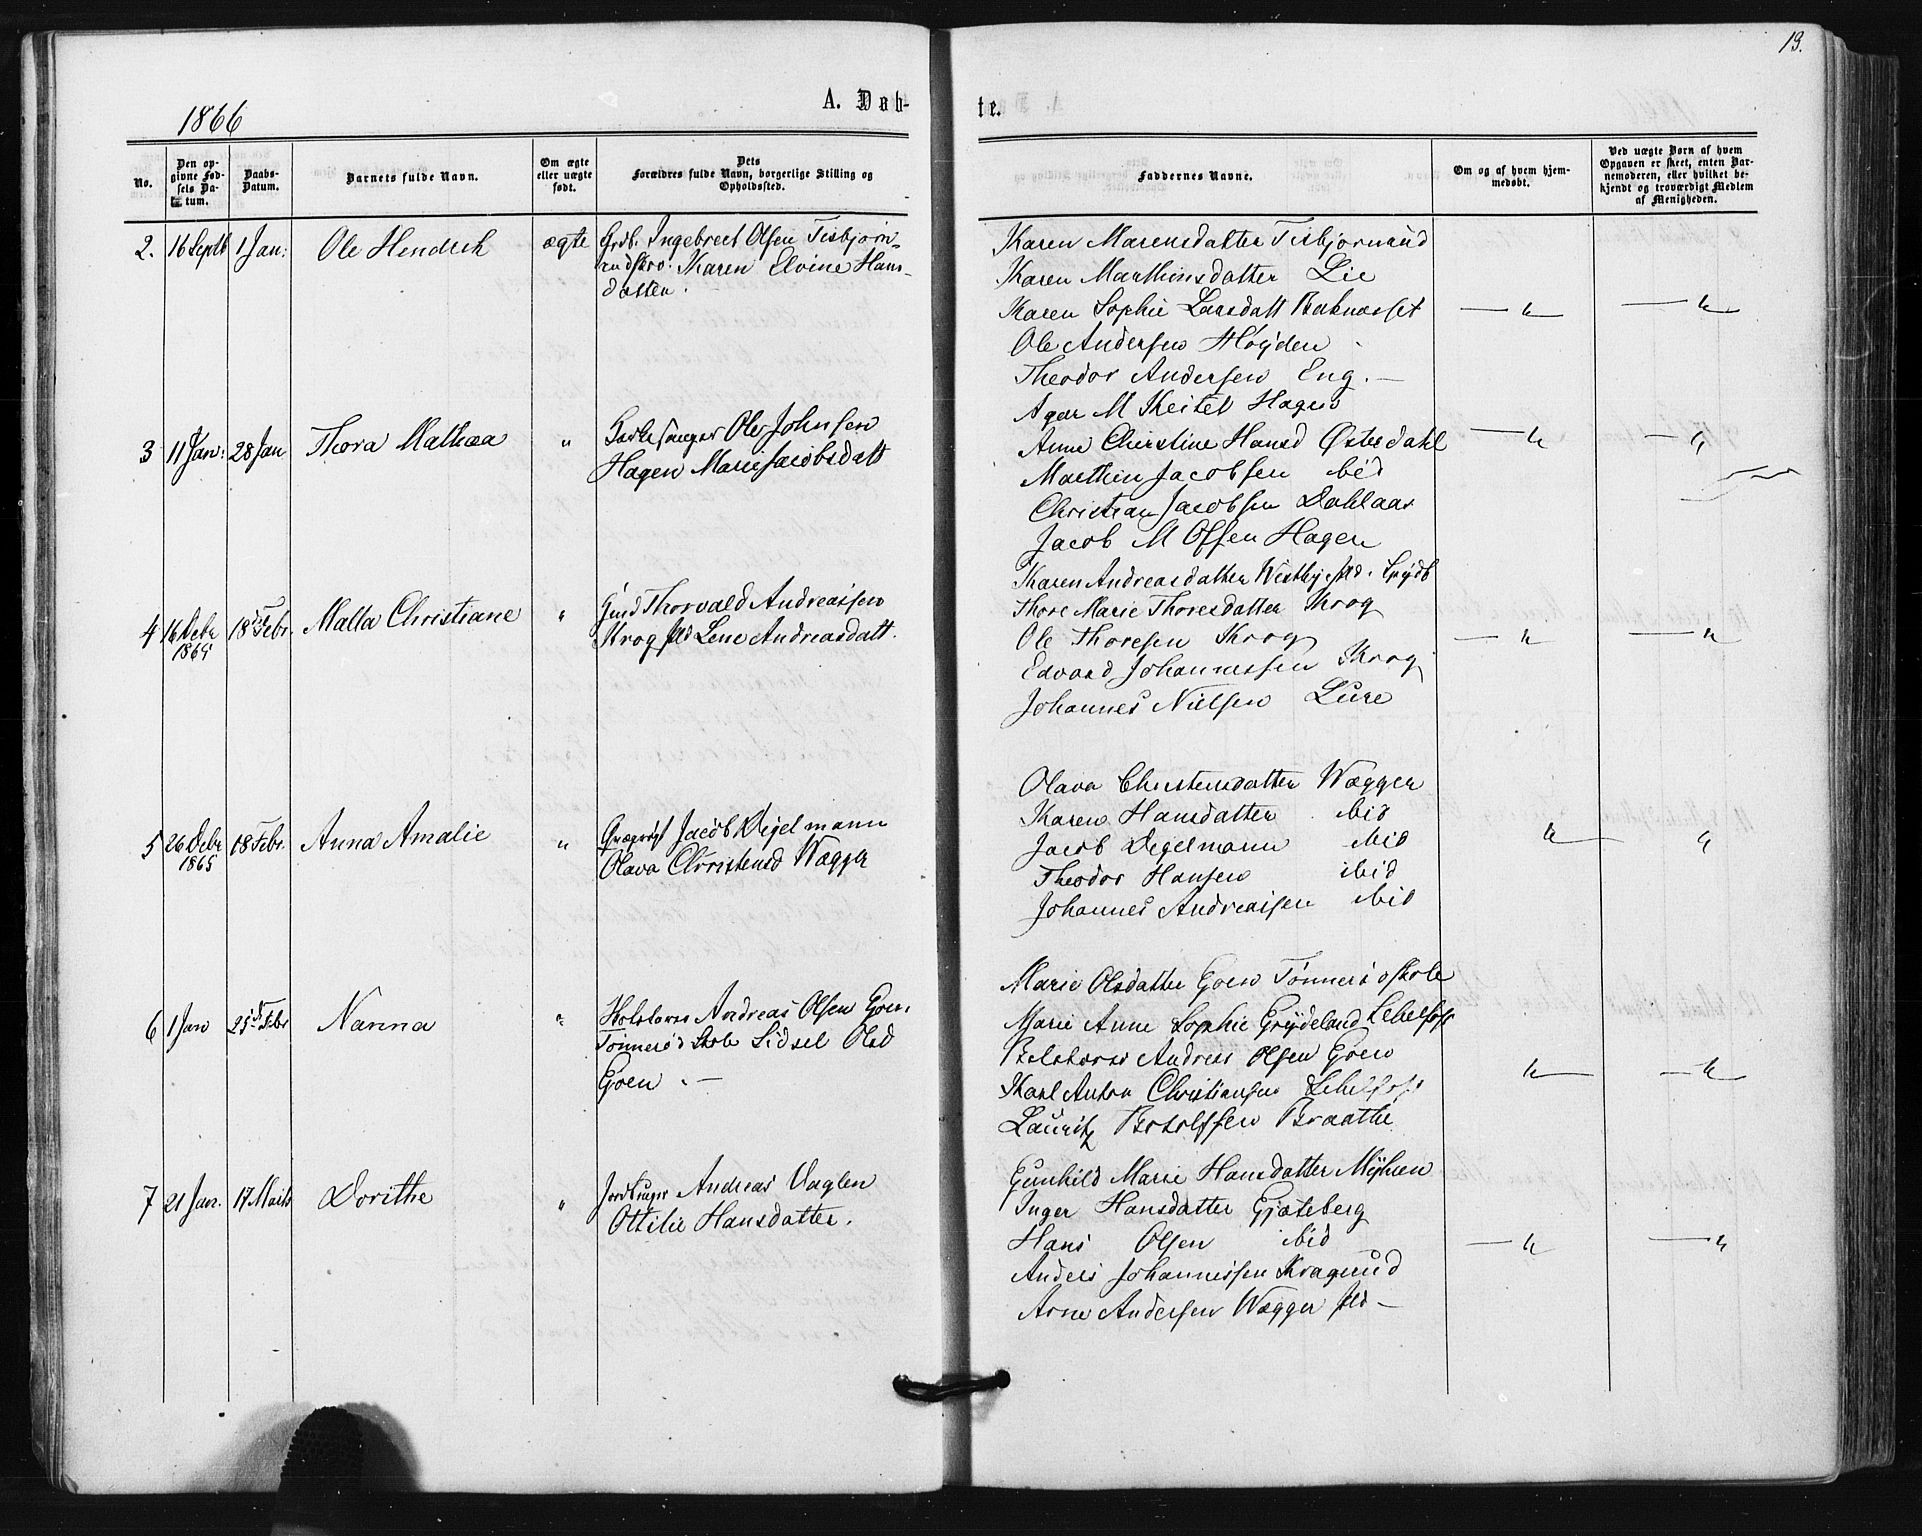 13.
1866
A. Døb-
te.
No.
Den op-
givne Fød-
sels Da-
tum.
Daabs-
Datum.
Barnets fulde Navn.
Om ægte
eller uægte
født.
Dets
Forældres fulde Navn, borgerlige Stilling og
Opholdssted.
Faddernes Navne.
Om og af hvem hjem-
medøbt.
Ved uægte Børn af hvem
Opgaven er skeet, enten Bar-
nemoderen, eller hvilket be-
kjendt og troværdigt Medlem
af Menigheden.
2. 16 Septb 1 Jan: Ole Hendrik ægte
Grdb. Ingebret Olsen Tisbjørn-
Karen Elvine Hans-
datter.
Karen Marensdatter Tisbjørnrud
Karen Marthinsdatter Lie
Karen Sophie Larsdatt
Ole Andersen Høyden
Theodor Andersen Eng. —
3 11 Jan: 28 Jan Thora Mathea "
Kirkesanger Ole Johnsen
Hagen Marie Jacobsdatt
M Keitel Hagen
Anne Christine Hansd Østerdahl
Marthin Jacobsen ibid
Christian Jacobsen Dahlaas
Jacob M Olsen Hagen
4 16 Debr 1865 18de Febr. Malla Christiane "
Thorvald Andreassen
Krog Lene Andreasdatt.
Karen Andreasdatter Westby
Thore Marie Thoresdatter Krog
Ole Thoresen Krog
Edvard Johannessen Krog
Johannes Nielsen Lure
5 26 Debr 1865 18 Febr. Anna Amalie "
Jacob Degelmann
Olava Christensd Wægger
Olava Christensdatter Wægger
Karen Hansdatter ibid
Jacob Degelmann ibid
Theodor Hansen ibid
Johannes Andreassen ibid
6 1 Jan 25de Febr Nanna "
Andreas Olsen Goen,
Tønnerød Skole Sidsel Olsd
Goen . —
Marie Olsdatter Goen Tønnerø skole
Marie Anne Sophie Grydeland
Andreas Olsen Goen
Karl Anton Christiansen
Lauritz Botolfsen Braathe
7 21 Jan. 17 Marts Dorithe "
Jordbruger Andreas Daglen
Ottilie Hansdatter.
Gunhild Marie Hansdatter Myhren
Inger Hansdatter Gjeteberg
Hans Olsen ibid
Anders Johannessen Kragerud
Arne Andersen Wægger